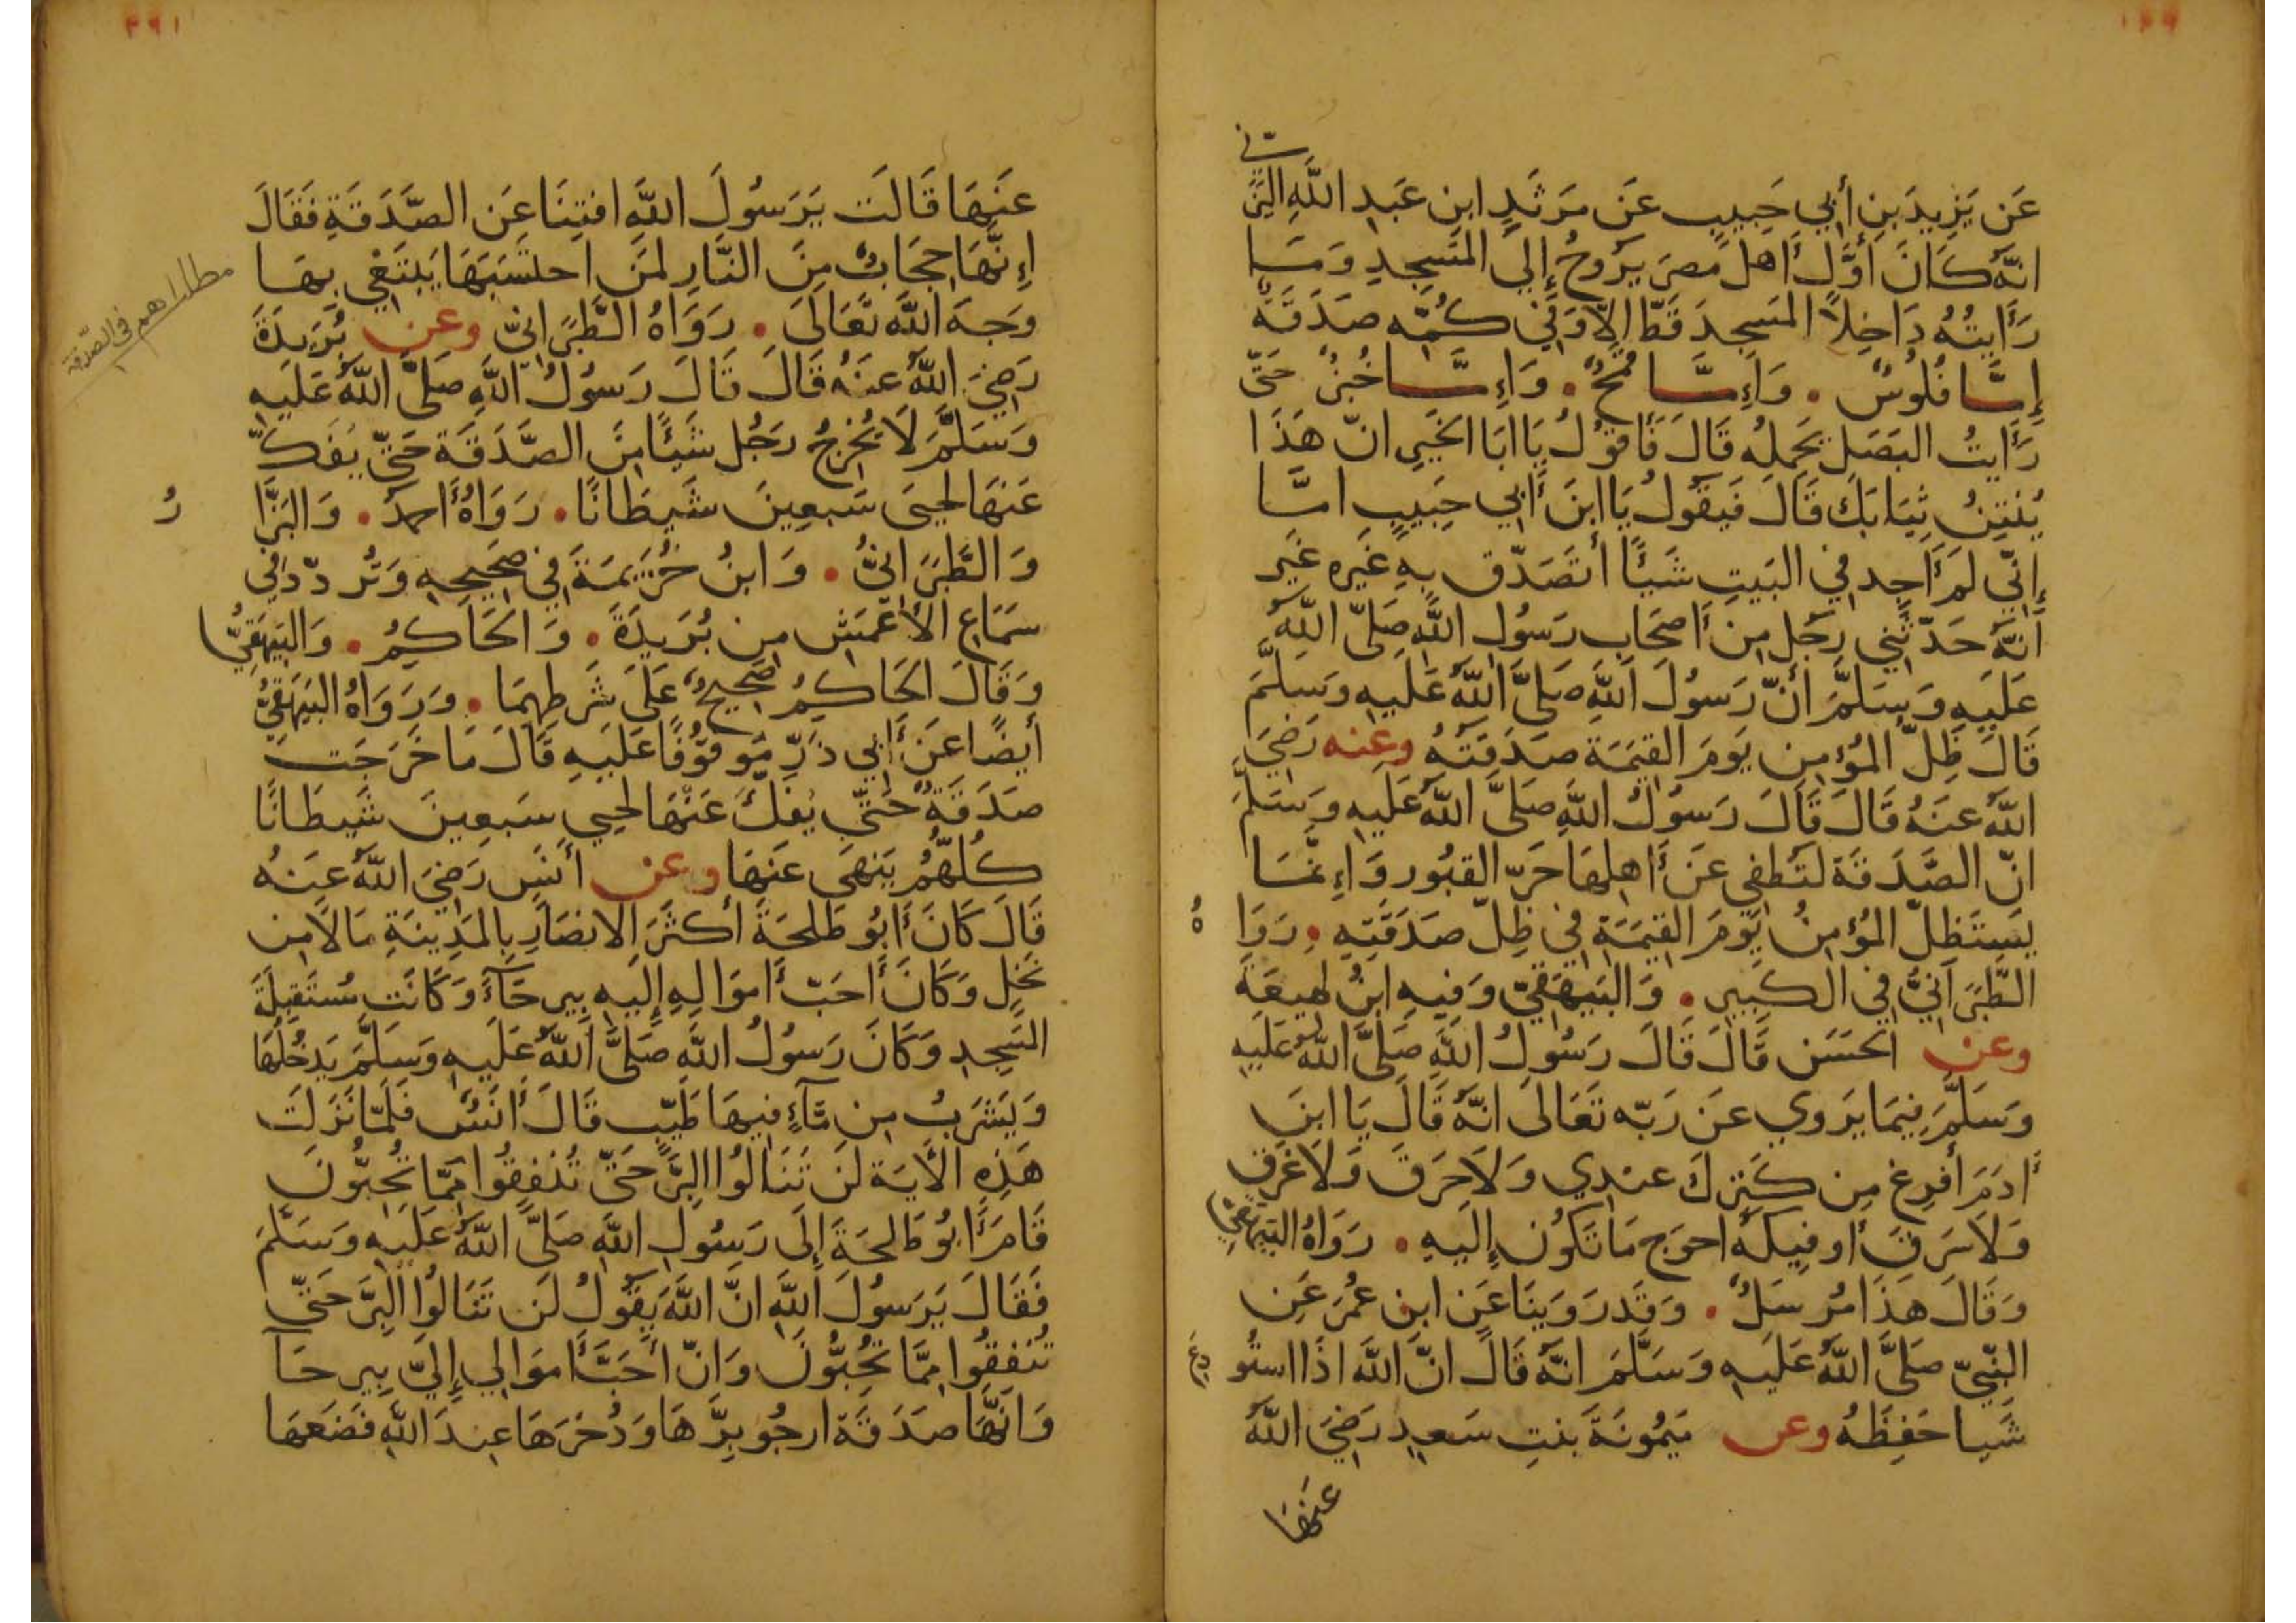 عَن يَزِيدَ بنِ أَبِي حَبِيبٍ عَن مَرثَدٍ ابنِ عَبدِ اللَّهِ اليَزَني
انَّهُ كَانَ أَوَّلَ أَهلِ مصرَ يَرُوحُ إِلي المَسجِدِ وَمَا
رَأَيتُهُ دَاخِلاً المَسجِدَ قَطّ الاّ وَفِي كُمِّه صَدَقَةٌ
إِمَّا فُلُوسٌ . وَإِمَّا قمحٌ . وَإِمَّا خُبزٌ حَتّى
رَأَيتُ البَصَلَ يَحمِلُه قَالَ فَأَقُولُ يَا ابَا الخَيرِ انّ هَذَا
يُنتِنُ ثِيَابَكَ قَالَ فَيَقُولُ يَا ابنَ أَبِي حَبِيبٍ امَّا
إِنّي لَم أَجِد فِي البَيتِ شَيئًا أَتَصَدّق بِهِ غَيرَه غَير
أَنَّهُ حَدّثَنِي رَجُل مِن أَصحَابِ رَسُولِ اللَّهِ صَلَّى اللَّهُ
عَلَيهِ وَسَلَّمَ أَنّ رَسُولَ اللَّهِ صَلَّى اللَّهُ عَلَيهِ وَسَلَّمَ
قَالَ ظِلّ المُؤمِن يَومَ القِيَمَة صَدَقَتُهُ وعنه رَضِيَ
اللَّهُ عَنهُ قَالَ قَالَ رَسُولُ اللَّهِ صَلَّى اللَّهُ عَلَيهِ وَسَلَّمَ
انّ الصَّدَقَة لَتُطفِي عَن أَهلِهَا حَرّ القبُور وَإِنَّمَا
يَستَظِلّ المُؤمِنُ يَومَ القِيَمَةِ فِي ظِلّ صَدَقَتِهِ . رَوَاهُ
الطَّبَرَانِيُّ فِي الكَبِيرِ . وَالبَيهَقِيّ وَفِيهِ ابنُ لهيعَة
وعن الحَسَن قَالَ قَالَ رَسُولُ اللَّهِ صَلَّى اللَّهُ عَلَيهِ
وَسَلَّمَ فِيمَا يَروِي عَن رَبّه تَعَالَى انَّهُ قَالَ يَا ابنَ
أَدَمَ أَفرِغ مِن كَنزِكَ عندِي وَلاَ حَرَقَ وَلاَ غَرَق
وَلاَ سَرَقَ أُوفِيكَهُ احوَج مَا تَكُون إِلَيهِ . رَوَاهُ البَيهَقِيّ
وَقَالَ هَذَا مُرسَلٌ . وَقَد رَوَينَا عَن ابنِ عُمَرَ عَنِ
النّبِيّ صَلَّى اللَّهُ عَلَيهِ وَسَلَّمَ انَّهُ قَالَ انَّ اللَّهَ اذَا استُودِعَ
شَيا حَفِظَهُ وعن مَيمُونَةَ بِنتِ سَعِيدٍ رَضِيَ اللَّهُ
عَنهَا
عَنهَا قَالَت يَرَسُولَ اللَّهِ افتِنَا عَنِ الصَّدَقَةِ فَقَالَ
إِنَّهَا حِجَابٌ مِنَ النَّارِ لمَن احتَسَبَهَا يَبتَغِي بِهَا
وَجهَ اللَّهِ تَعَالَى . رَوَاهُ الطَّبَرَانِيّ وعن بُرَيدَةَ
مطلب اهم فى الصّدقة
رَضِيَ اللَّهُ عَنهُ قَالَ قَالَ رَسُولُ اللَّهِ صَلَّى اللَّهُ عَلَيهِ
وَسَلَّمَ لاَ يُخرِجُ رَجُل شَيئًا مِنَ الصَّدَقَة حَتّى يَفُكّ
عَنهَا لحيَى سَبعِينَ شَيطَانًا . رَوَاهُ أَحمَدُ . وَالبَزَّارُ
وَالطَّبَرَانِيُّ . وَابنُ خُزَيمَةَ فِي صَحِيحِهِ وَتُردّد فِي
سَمَاعِ الأَعمَش مِن بُرَيدَةَ . وَالحَاكِمُ . وَالبَيهَقِيُّ
وَقَالَ الحَاكِمُ صَحِيحٌ عَلَى شَرطِهِمَا . وَرَوَاهُ البَيهَقِيُّ
أَيضًا عَن أَبِي ذَرٍّ مَوقوُفًا عَلَيهِ قَالَ مَا خَرَجَت
صَدَقَةٌ حَتّى يُفَكّ عَنهَا لحيي سَبعِينَ شَيطَانًا
كُلّهُم يَنهَى عَنهَا وعن أَنَسٍ رَضِيَ اللَّهُ عَنهُ
قَالَ كَانَ أَبُو طَلحَةَ أَكثَرَ الانصَارِ بِالمَدِينَةِ مَالاً مِن
نَخلٍ وَكَانَ أَحَبّ أَموَالِهِ إِلَيهِ بِيرحَآءَ وَكَانَت مُستَقبِلَةَ
المَسجِدِ وَكَانَ رَسُولُ اللَّهِ صَلَّى اللَّهُ عَلَيهِ وَسَلَّمَ يَدخُلُهَا
وَيَشرَبُ مِن مَّآءٍ فِيهَا طَيّبٍ قَالَ أَنَسٌ فَلَمّا نَزَلَت
هَذِهِ الأَيَة لَن تَنَالُوا البِرَّ حَتّى تُنفِقُوا مِمَّا تُحِبُّونَ
قَامَ أَبُو طَلحَةَ إِلَى رَسُولِ اللَّهِ صَلَّى اللَّهُ عَلَيهِ وَسَلَّمَ
فَقَالَ يَرَسُولَ اللَّهِ انَّ اللَّهَ يَقُولُ لَن تَنَالُوا البِرَّ حَتّى
تُنفِقُوا مِمَّا تُحِبُّونَ وَانّ أَحَبَّ أَموَالِي إِلَيّ بِيرحَآ
وَانَّهَا صَدَقَة ارجُو بِرَّهَا وَذُخرَهَا عِندَ اللَّهِ فَضَعهَا